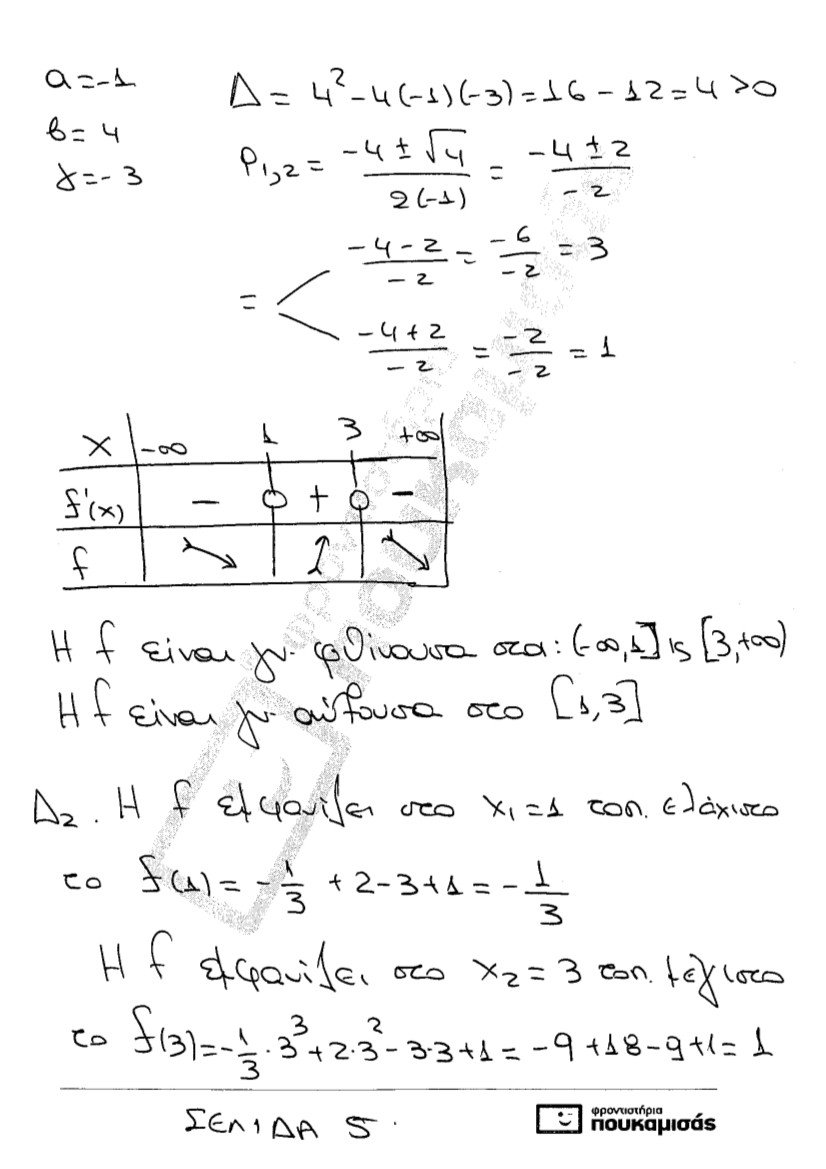 α=-1 Δ = 4² - 4(-1)(-3) = 16 - 12 = 4 > 0
β= 4
γ=-3 ρ₁,₂ = (-4 ± √4)/(2(-1)) = (-4 ± 2)/(-2)
(-4-2)/(-2) = (-6)/(-2) = 3
=
(-4+2)/(-2) = (-2)/(-2) = 1
x -∞ 1 3 +∞
f'(x) - 0 + 0 -
f ↘ ↑ ↘
Η f είναι γν. φθίνουσα στα: (-∞,1] κ [3,+∞)
Η f είναι γν. αύξουσα στο [1,3]
Δ₂. Η f εμφανίζει στο x₁=1 τοπ. ελάχιστο
το f(1) = -1/3 + 2-3+1 = -1/3
Η f εμφανίζει στο x₂=3 τοπ. μέγιστο
το f(3) = -1/3 · 3³ + 2·3² - 3·3 + 1 = -9 + 18 - 9 + 1 = 1
ΣΕΛΙΔΑ 5.
φροντιστήρια
πουκαμισάς